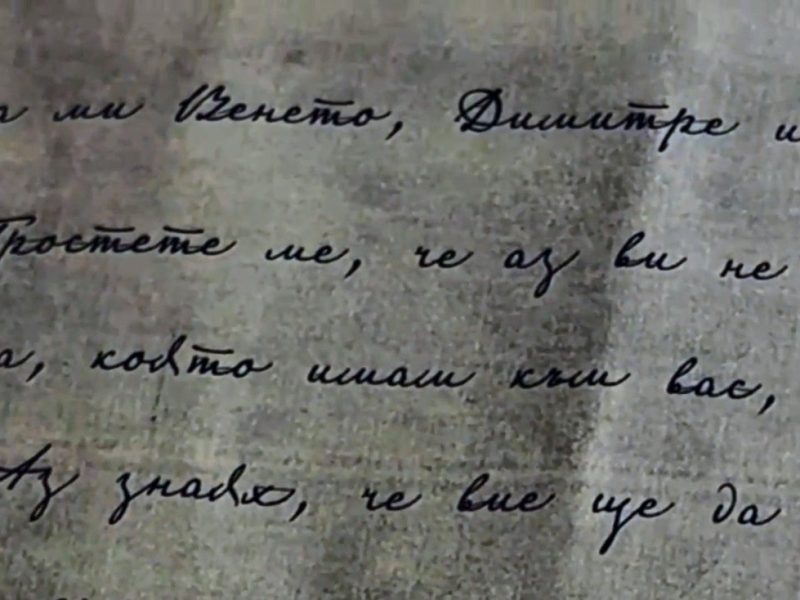 ми Венето, Димитре и
Простете ме, че аз ви не
която имам към вас,
Аз знаях, че вие ще да